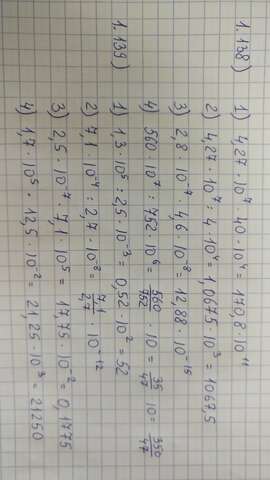 1.138) 1) 4,27 · 10⁷ · 40 · 10⁴ = 170,8 · 10¹¹
2) 4,27 · 10⁷ : 4 · 10⁴ = 1,0675 · 10³ = 1067,5
3) 2,8 · 10⁻⁷ · 4,6 · 10⁻⁸ = 12,88 · 10⁻¹⁵
4) 560 · 10⁷ : 752 · 10⁶ = 560/752 · 10 = 35/47 · 10 = 350/47
1.139) 1) 1,3 · 10⁵ : 25 · 10⁻³ = 0,52 · 10² = 52
2) 7,1 · 10⁴ : 2,7 · 10⁻⁸ = 7,1/2,7 · 10⁻¹²
3) 2,5 · 10⁻⁷ · 7,1 · 10⁵ = 17,75 · 10⁻² = 0,1775
4) 1,7 · 10⁵ · 12,5 · 10⁻² = 21,25 · 10³ = 21250